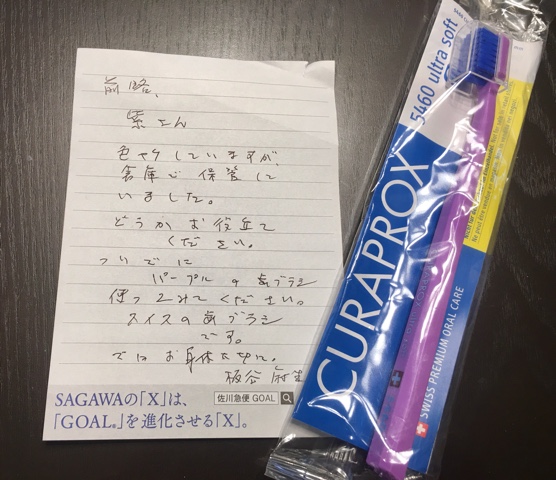 前略、
紫さん
色ヤケしていますが、
倉庫で保管して
いました。
どうかお役立て
ください。
ついでに
パープルの歯ブラシ
使ってみてください。
スイスの歯ブラシ
です。
ではお身体大切に。
板谷
SAGAWAの「X」は、
「GOAL®」を進化させる「X」。
佐川急便 GOAL
CURAPROX
5460 ultra soft
SWISS PREMIUM ORAL CARE